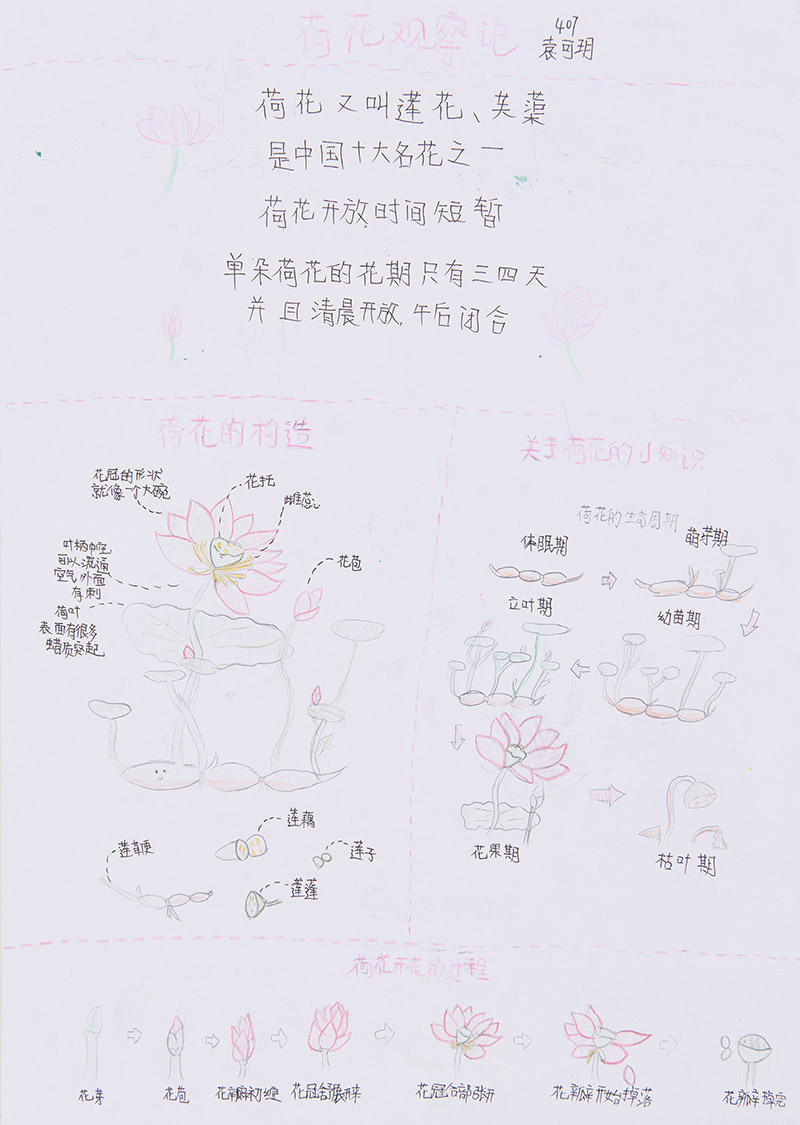 荷花观察记
407
袁可玥
荷花又叫莲花、芙蕖
是中国十大名花之一
荷花开放时间短暂
单朵荷花的花期只有三四天
并且清晨开放,午后闭合
荷花的构造
花冠的形状
就像一个大碗
花托
雌蕊
花苞
叶柄中空
可以流通
空气外面
有刺
荷叶
表面有很多
蜡质突起
莲鞭
莲藕
莲子
莲蓬
关于荷花的小知识
荷花的生命周期
休眠期
萌芽期
幼苗期
立叶期
花果期
枯叶期
荷花开花的过程
花芽
花苞
花瓣初绽
花冠舒展开来
花冠全部张开
花瓣开始掉落
花瓣掉完